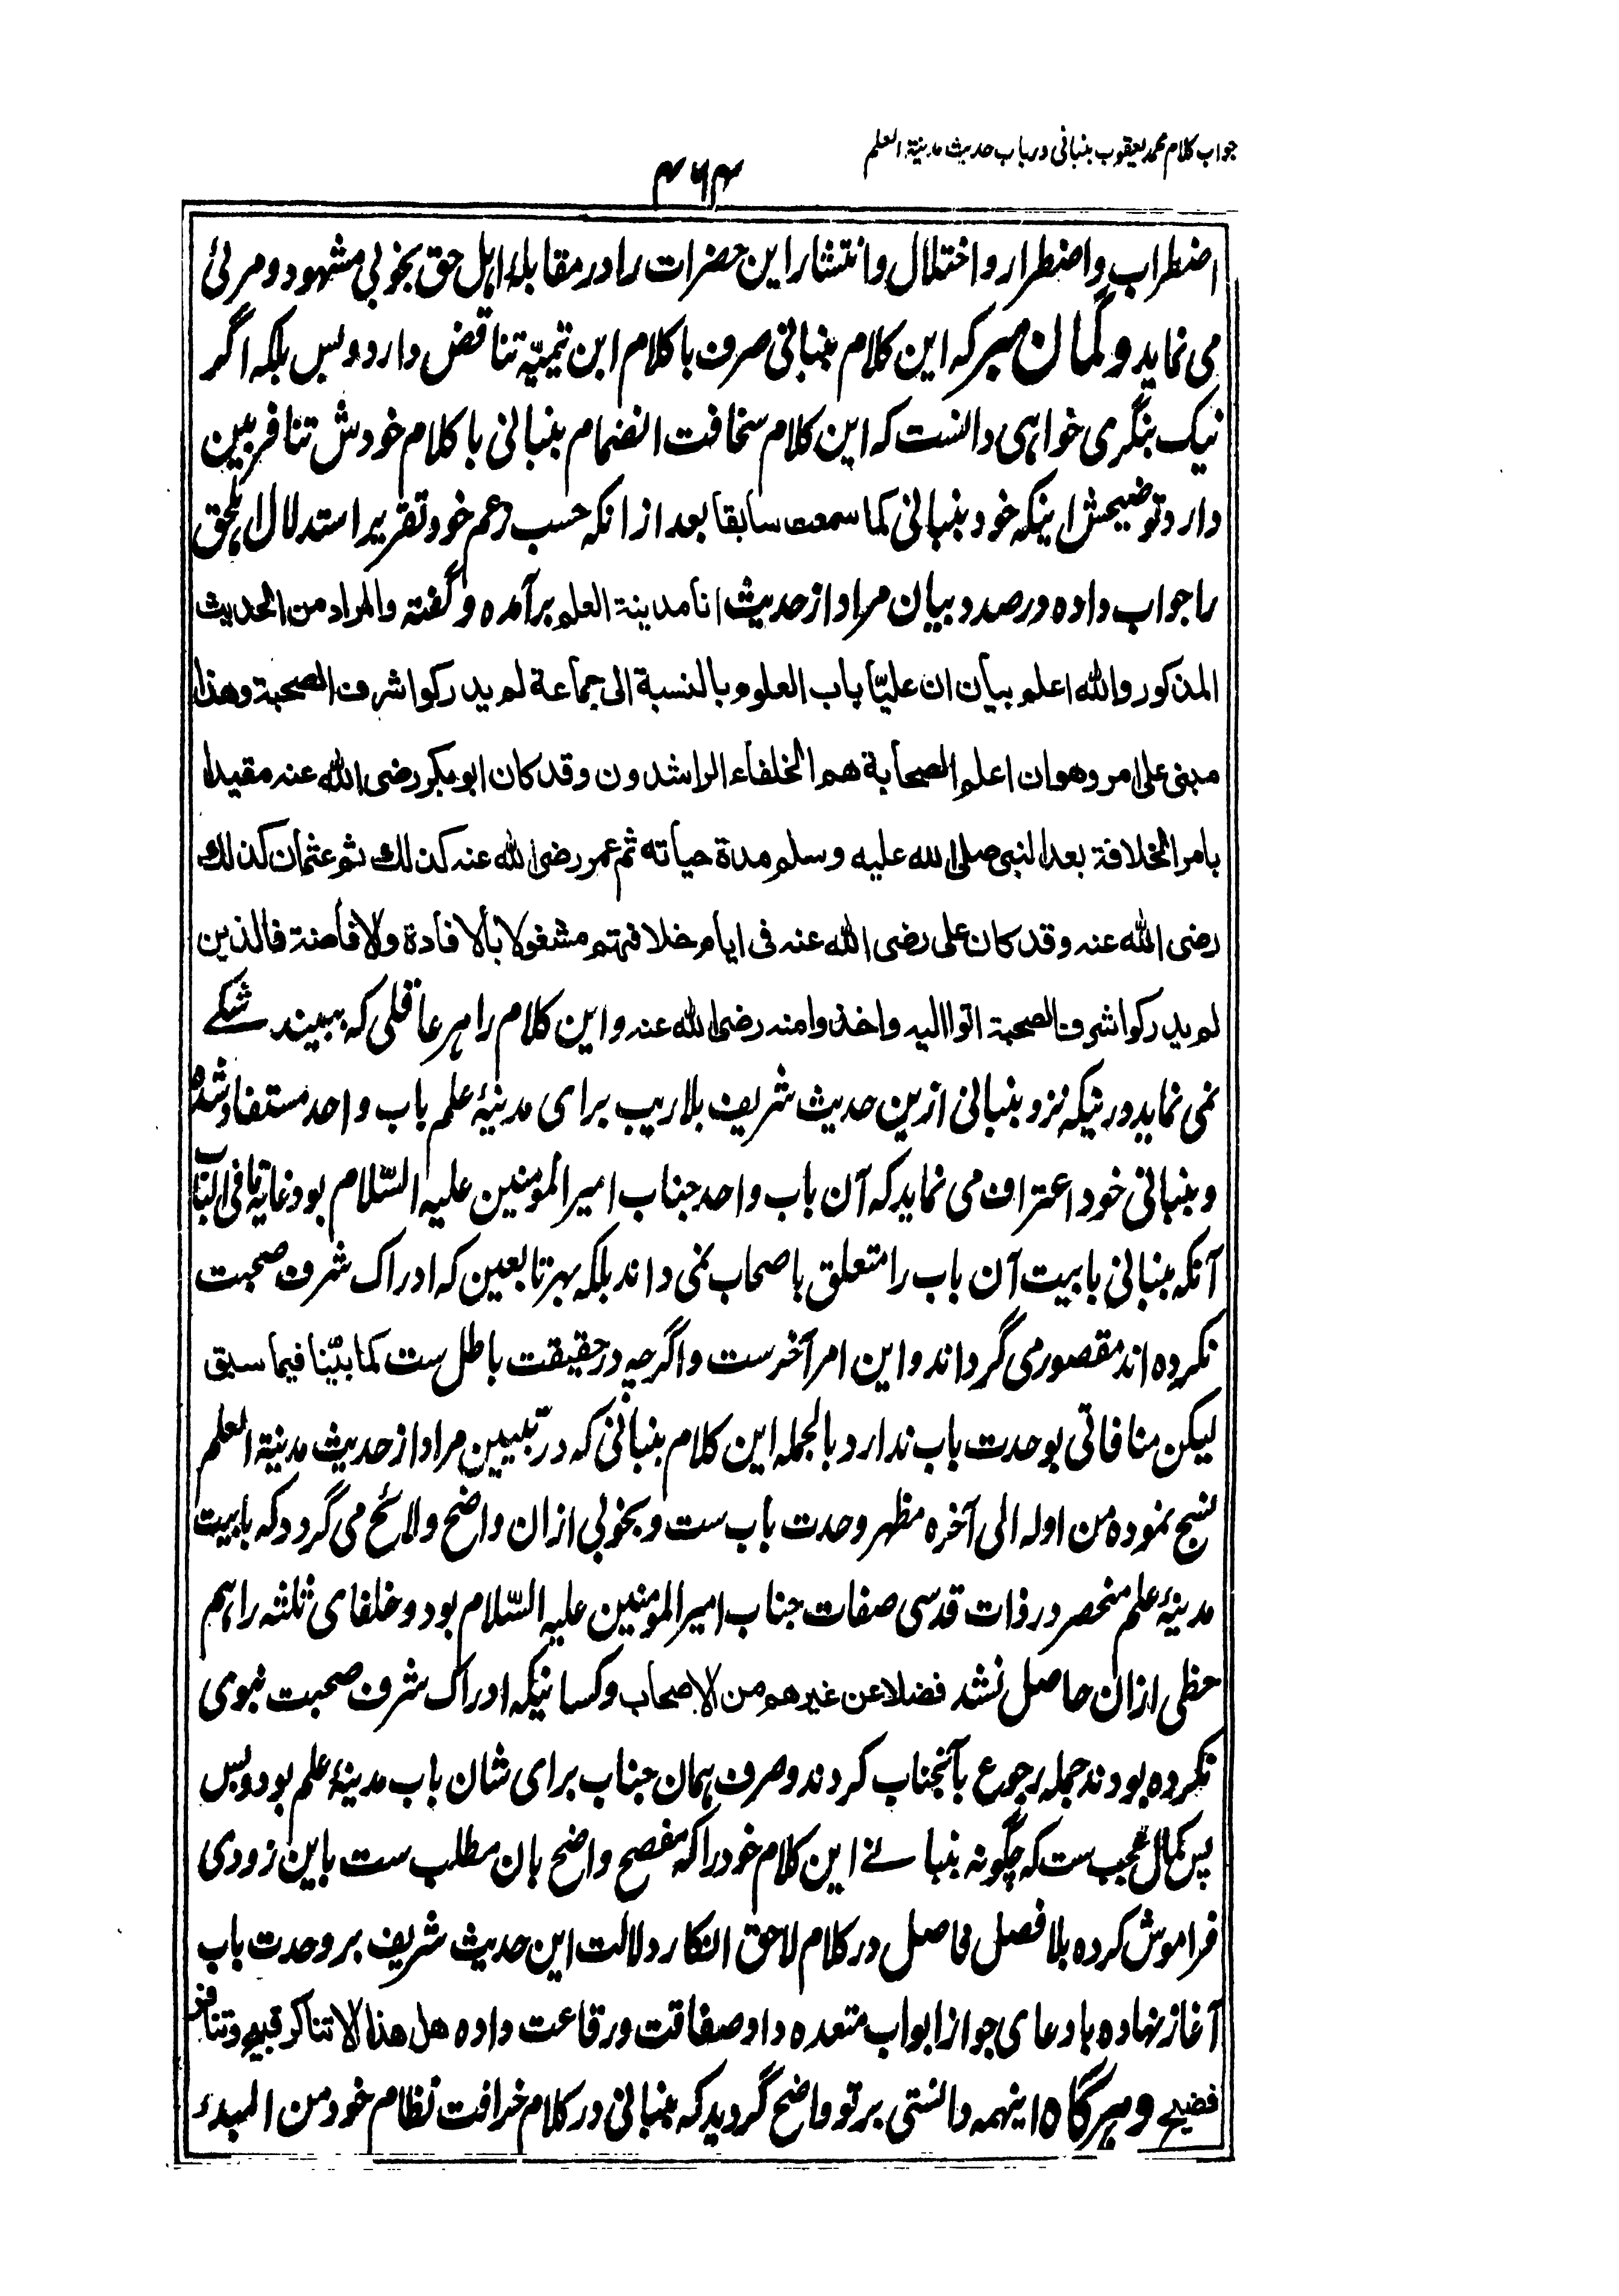 جواب کلام محمد یعقوب بنبانی در باب حدیث مدینة العلم
۴۶۴
اضطراب و اضطرار و اختلال و انتشار این حضرات را در مقابلۀ اہل حق بخوبی مشہود و مرئی
می نماید و گمان مبر کہ این کلام بنبانی صرف با کلام ابن تیمیّہ تناقض دارد و بس بلکہ اگر
نیک بنگری خواہی دانست کہ این کلام سخافت انضمام بنبانی با کلام خودش تنافر بین
دارد توضیحش اینکہ خود بنبانی کما سمعت سابقا بعد از انکہ حسب زعم خود تقریر استدلال اہل حق
را جواب داده در صدد بیان مراد از حدیث انا مدینة العلم برآمده و گفتہ والمراد من الحدیث
المذکور والله اعلم بیان ان علیّا باب العلوم بالنسبة الی جماعة لم یدرکوا شرف الصحبة وهذا
مبنی علی امر وهو ان اعلم الصحابة هم الخلفاء الراشدون وقد کان ابوبکر رضی الله عنه مقیدا
بامر الخلافة بعد النبی صلی الله علیه وسلم مدة حیاته ثم عمر رضی الله عنه کذلك ثم عثمان کذلك
رضی الله عنه وقد کان علی رضی الله عنه فی ایام خلافتهم مشغولا بالافادة والافاضة فالذین
لم یدرکوا شرف الصحبة اتوا الیه واخذوا منه رضی الله عنه و این کلام را ہر عاقلی کہ ببیند شکے
نمی نماید درینکہ نزد بنبانی ازین حدیث شریف بلا ریب برای مدینۂ علم باب واحد مستفاد شده
و بنبانی خود اعتراف می نماید کہ آن باب واحد جناب امیر المؤمنین علیہ السّلام بود غایۃ ما فی الباب
آنکہ بنبانی بابیت آن باب را متعلق باصحاب نمی داند بلکہ بہر تابعین کہ ادراک شرف صحبت
نکرده اند مقصور می گرداند و این امر آخرست و اگرچہ در حقیقت باطل ست کما بیّنا فیما سبق
لیکن منافاتی بوحدت باب ندارد بالجملہ این کلام بنبانی کہ در تبیین مراد از حدیث مدینة العلم
نسج نموده من اولہ الی آخره مظہر وحدت باب ست و بخوبی ازان واضح و لائح می گردد کہ بابیت
مدینۂ علم منحصر در ذات قدسی صفات جناب امیر المؤمنین علیہ السّلام بود و خلفای ثلثہ را ہم
حظی ازان حاصل نشد فضلا عن غیرهم من الاصحاب و کسانیکہ ادراک شرف صحبت نبوی
نکرده بودند جملہ رجوع بآنجناب کردند و صرف ہمان جناب برای شان باب مدینۂ علم بود و بس
پس کمال عجب ست کہ چگونہ بنبانے این کلام خود را کہ مفصح واضح بان مطلب ست باین زودی
فراموش کرده بلا فصل فاصل در کلام لاحق انکار دلالت این حدیث شریف بر وحدت باب
آغاز نہاده بادعای جواز ابواب متعدده داد صفاقت و رقاعت داده هل هذا الا تناکر قبیح وتنافر
فضیح و ہرگاه اینہمہ دانستی بر تو واضح گردید کہ بنبانی در کلام خرافت نظام خود من البدء